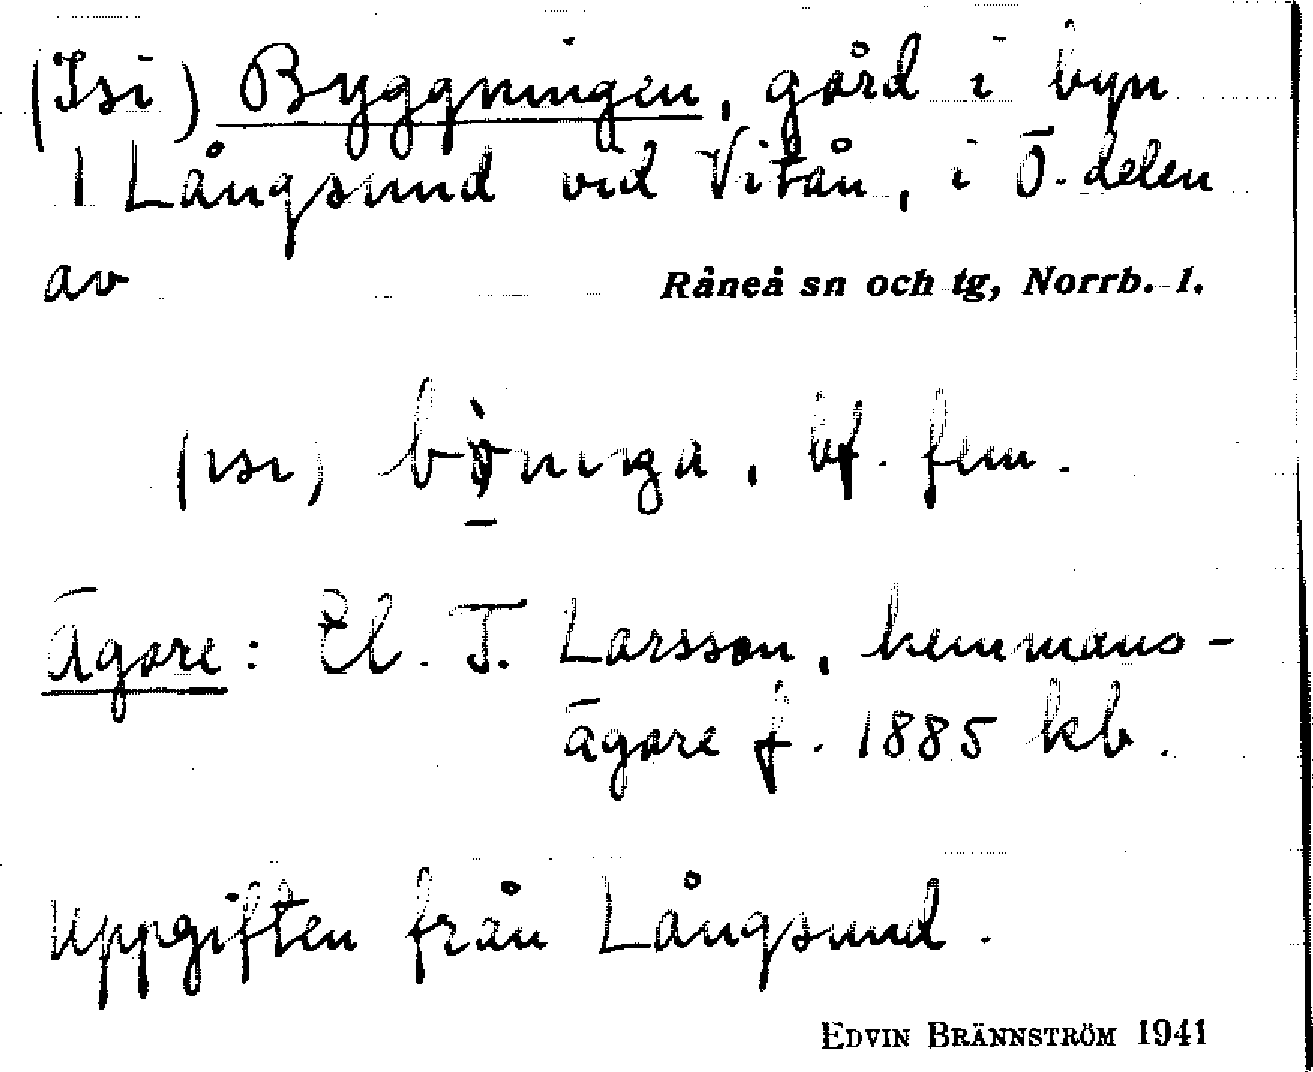 (Isi) Byggningen, gård i byn
1 Långsund vid Vitån, i Ö. delen
av Råneå sn och tg, Norrb. l.
(isi) bf. fem.
Ägare: El. T. Larsson, hemmans-
ägare f. 1885 kb.
Uppgiften från Långsund.
EDVIN BRÄNNSTRÖM 1941